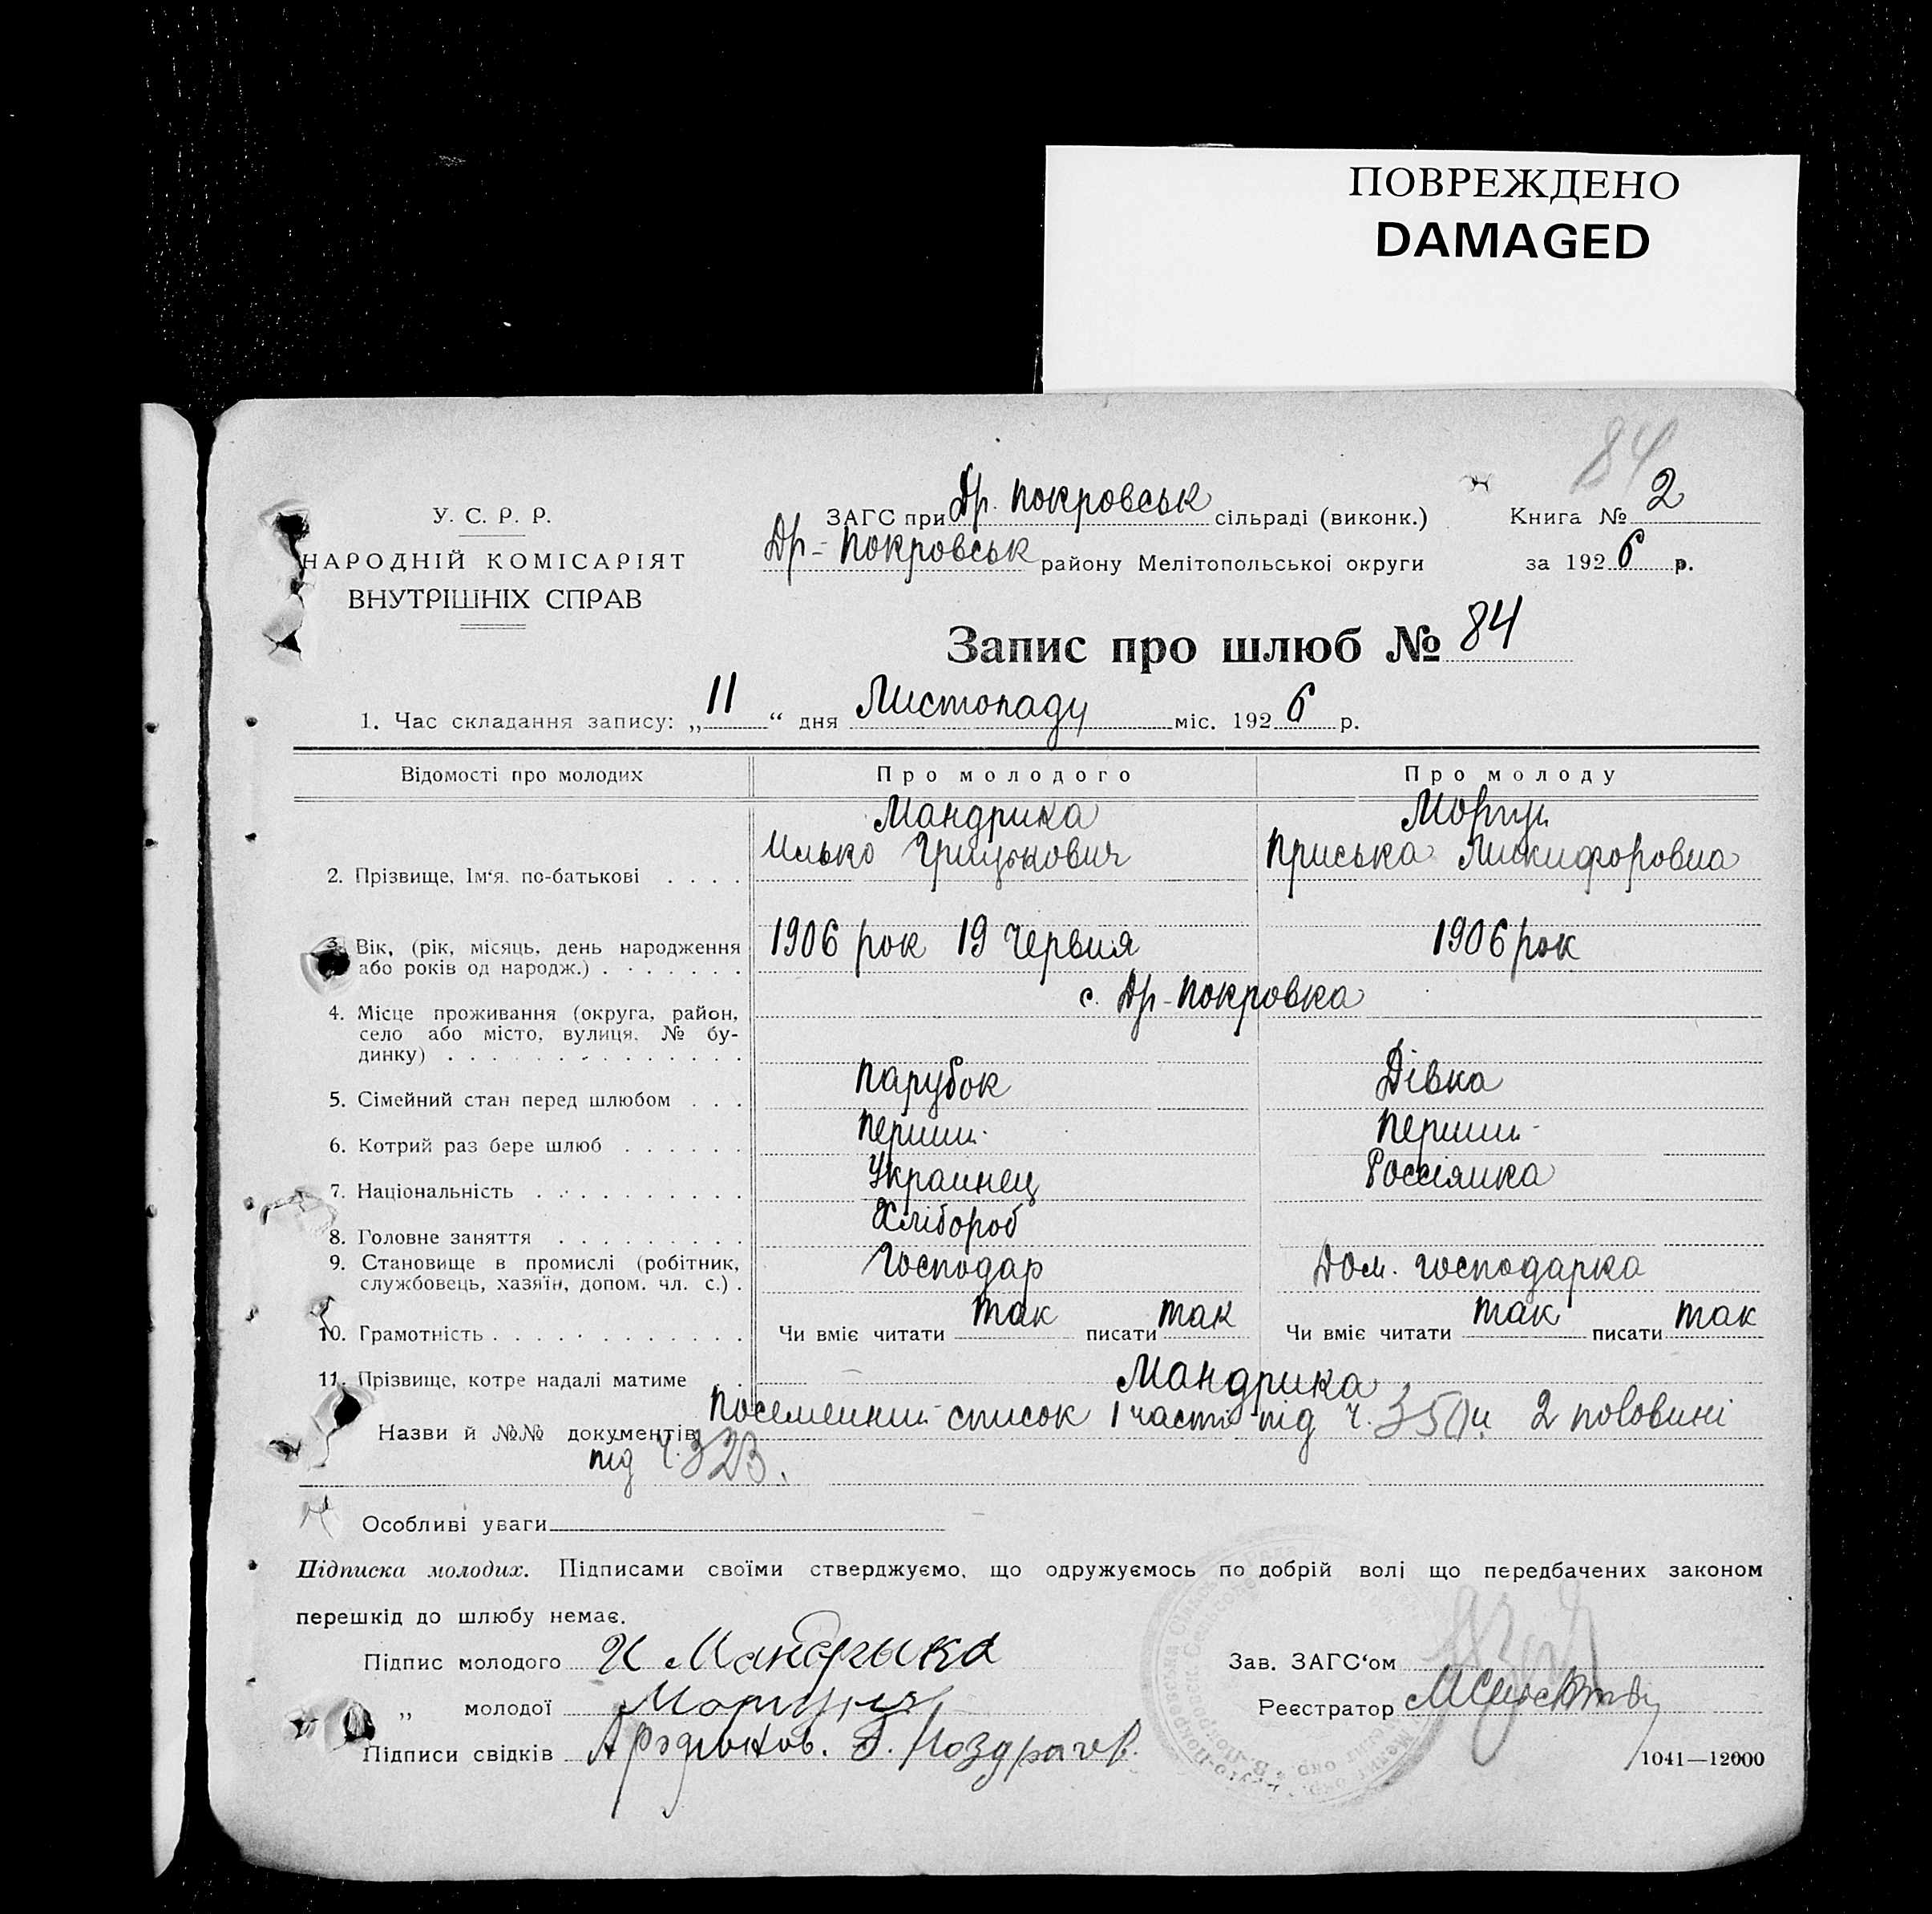 ПОВРЕЖДЕНО
DAMAGED
84
У. С. Р. Р.
НАРОДНІЙ КОМІСАРІЯТ
ВНУТРІШНІХ СПРАВ
ЗАГС при Др. Покровськ сільраді (виконк.)
Др-Покровськ району Мелітопольської округи
Книга № 2
за 1926 р.
Запис про шлюб № 84
1. Час складання запису: „11“ дня Листопаду міс. 1926 р.
Відомості про молодих Про молодого Про молоду
Мандрика
2. Прізвище, Ім‘я. по-батькові . . . . Илько Грицькович Приська Никифоровна
3. Вік, (рік, місяць, день народження 1906 рок 19 Червня 1906 рок
або років од народж.) . . . . . . .
4. Місце проживання (округа, район, с. Др-Покровка
село або місто, вулиця, № бу-
динку) . . . . . . . . . . . . . .
5. Сімейний стан перед шлюбом . . . Парубок Дівка
6. Котрий раз бере шлюб . . . . . . Перший Перший
7. Національність . . . . . . . . . . Украинец Россіянка
8. Головне заняття . . . . . . . . . Хлібороб
9. Становище в промислі (робітник, Господар Дом. господарка
службовець, хазяїн, допом. чл. с.) .
10. Грамотність . . . . . . . . . . . . Чи вміє читати так писати так Чи вміє читати так писати так
11. Прізвище, котре надалі матиме . . Мандрика
Назви й №№ документів Посемейний список 1 части під ч. 350 и 2 половині
під ч. 323.
Особливі уваги
Підписка молодих. Підписами своїми стверджуємо, що одружуємось по добрій волі що передбачених законом
перешкід до шлюбу немає.
Підпис молодого И Мандрыка
„ молодої
Підписи свідків
Зав. ЗАГС‘ом
Реєстратор
1041—12000